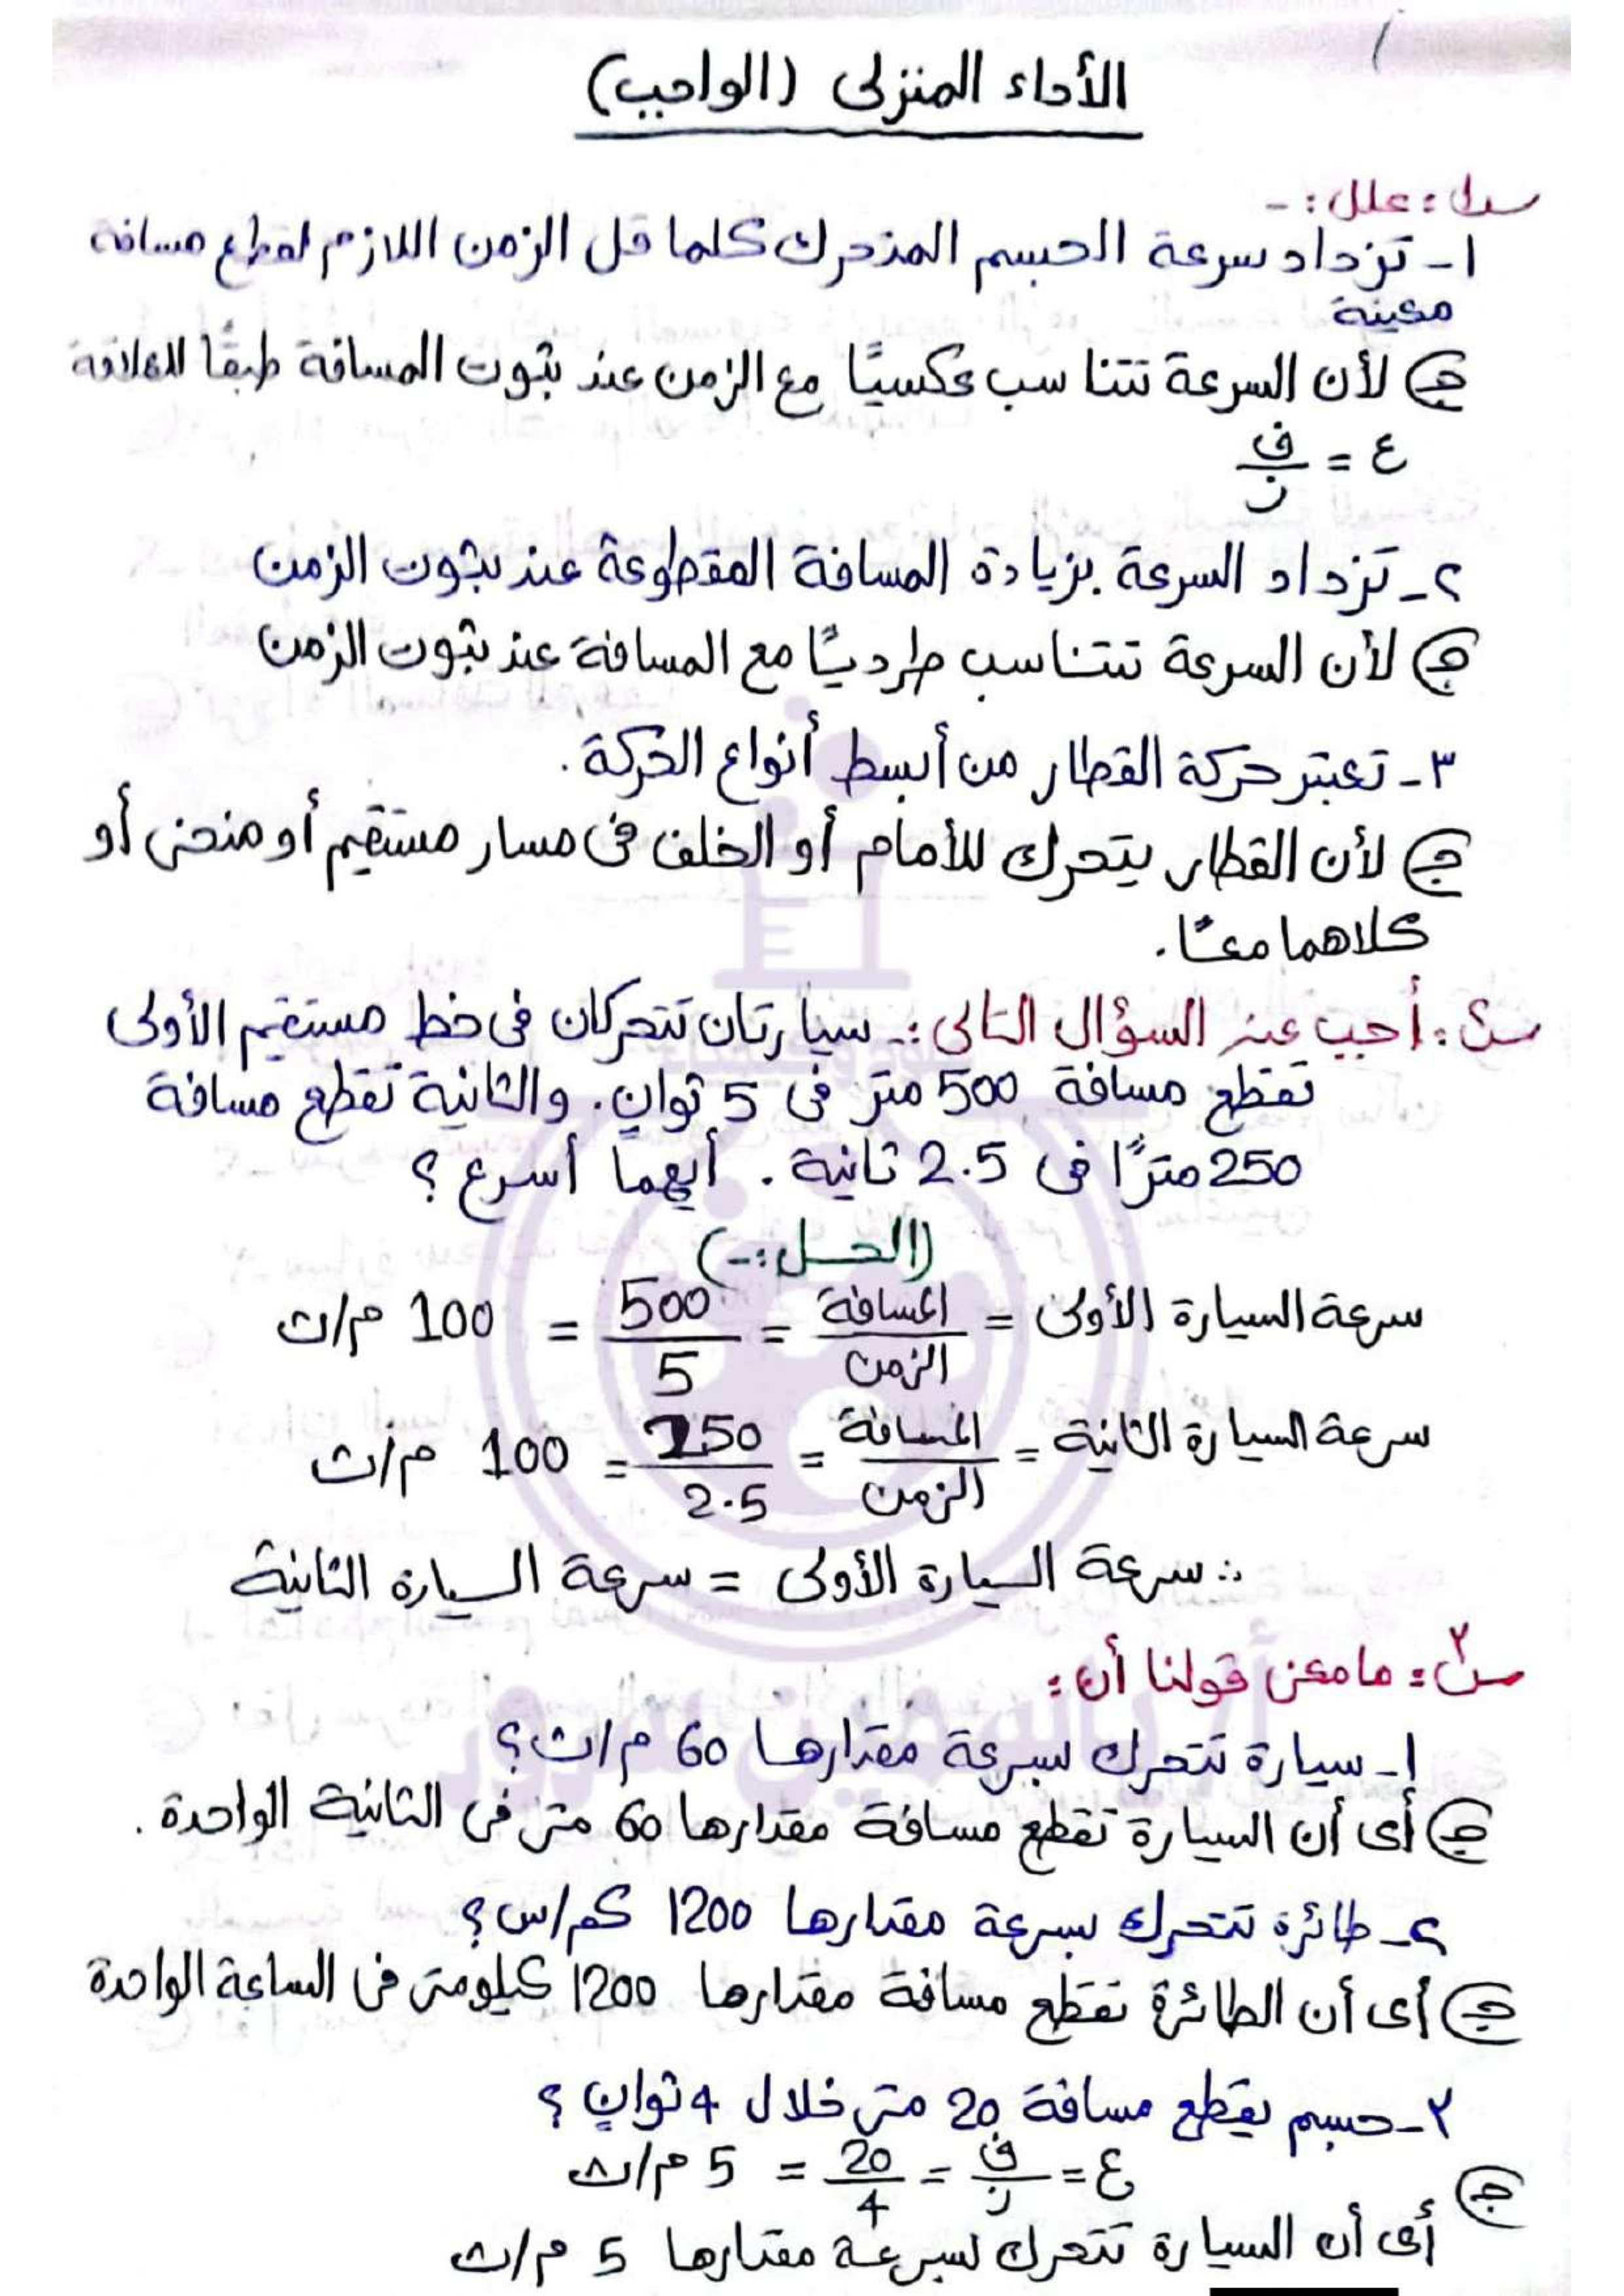 الأداء المنزلى (الواجب)
س١: علل: -
١- تزداد سرعة الجسم المتحرك كلما قل الزمن اللازم لقطع مسافة
معينة
ج لأن السرعة تتناسب عكسيًا مع الزمن عند ثبوت المسافة طبقًا للعلاقة
ع = ف/ز
٢- تزداد السرعة بزيادة المسافة المقطوعة عند ثبوت الزمن
ج لأن السرعة تتناسب طرديًا مع المسافة عند ثبوت الزمن
٣- تعتبر حركة القطار من أبسط أنواع الحركة.
ج لأن القطار يتحرك للأمام أو الخلف فى مسار مستقيم أو منحنى أو
كلاهما معًا.
س٢: أجب عن السؤال التالى :- سيارتان تتحركان فى خط مستقيم الأولى
تقطع مسافة 500 متر فى 5 ثوانٍ. والثانية تقطع مسافة
250 مترًا فى 2.5 ثانية. أيهما أسرع؟
(الحل:-)
سرعة السيارة الأولى = المسافة/الزمن = 500/5 = 100 م/ث
سرعة السيارة الثانية = المسافة/الزمن = 250/2.5 = 100 م/ث
∴ سرعة السيارة الأولى = سرعة السيارة الثانية
س٣: ما معنى قولنا أن:
١- سيارة تتحرك بسرعة مقدارها 60 م/ث؟
ج أى أن السيارة تقطع مسافة مقدارها 60 متر فى الثانية الواحدة.
٢- طائرة تتحرك بسرعة مقدارها 1200 كم/س؟
ج أى أن الطائرة تقطع مسافة مقدارها 1200 كيلومتر فى الساعة الواحدة
٣- جسم يقطع مسافة 20 متر خلال 4 ثوانٍ؟
ج ع = ف/ز = 20/4 = 5 م/ث
أى أن السيارة تتحرك بسرعة مقدارها 5 م/ث